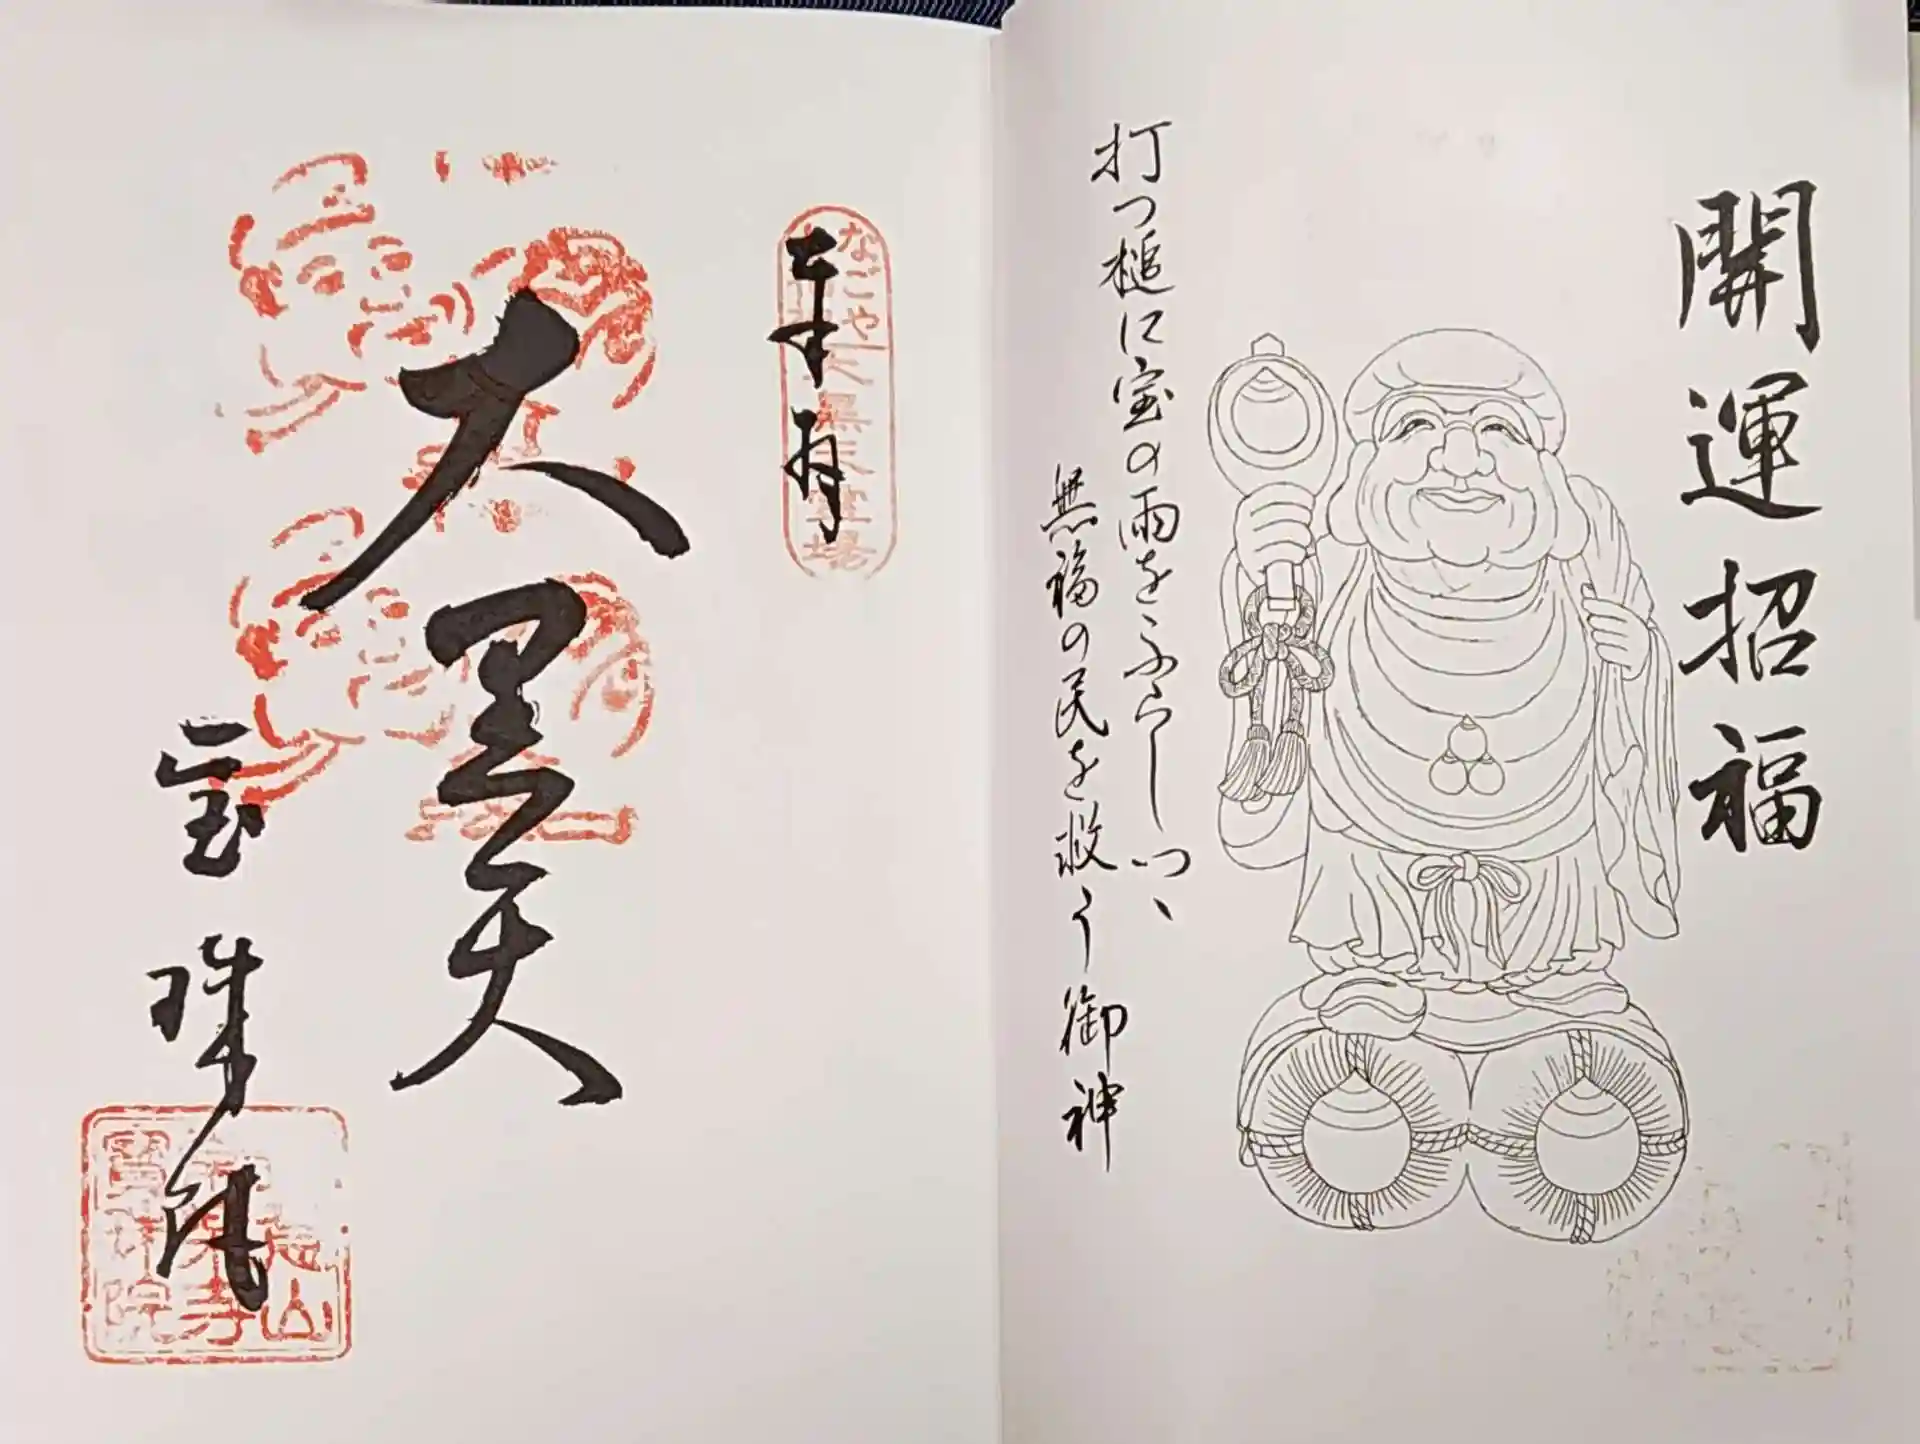 開運招福
打つ槌に宝の雨をふらしつゝ
無福の民を救う御神
なごや
大黒天霊場
奉拝
大黒天
宝珠院
山
寺
寳珠院